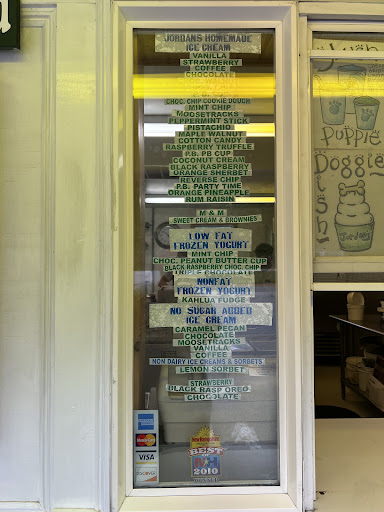 JORDANS HOMEMADE
ICE CREAM
VANILLA
STRAWBERRY
COFFEE
CHOCOLATE
CHOC. CHIP COOKIE DOUGH
MINT CHIP
MOOSETRACKS
PEPPERMINT STICK
PISTACHIO
MAPLE WALNUT
COTTON CANDY
RASPBERRY TRUFFLE
P.B. PB CUP
COCONUT CREAM
BLACK RASPBERRY
ORANGE SHERBET
REVERSE CHIP
P.B. PARTY TIME
ORANGE PINEAPPLE
RUM RAISIN
M & M
SWEET CREAM & BROWNIES
LOW FAT
FROZEN YOGURT
MINT CHIP
CHOC. PEANUT BUTTER CUP
BLACK RASPBERRY CHOC. CHIP
TRIPLE CHOCOLATE
NONFAT
FROZEN YOGURT
KAHLUA FUDGE
NO SUGAR ADDED
ICE CREAM
CARAMEL PECAN
CHOCOLATE
MOOSETRACKS
VANILLA
COFFEE
NON DAIRY ICE CREAMS & SORBETS
LEMON SORBET
STRAWBERRY
BLACK RASP OREO
CHOCOLATE
MasterCard
VISA
DISCOVER
BEST
NH
2010
Puppie
Doggie
Jordan's